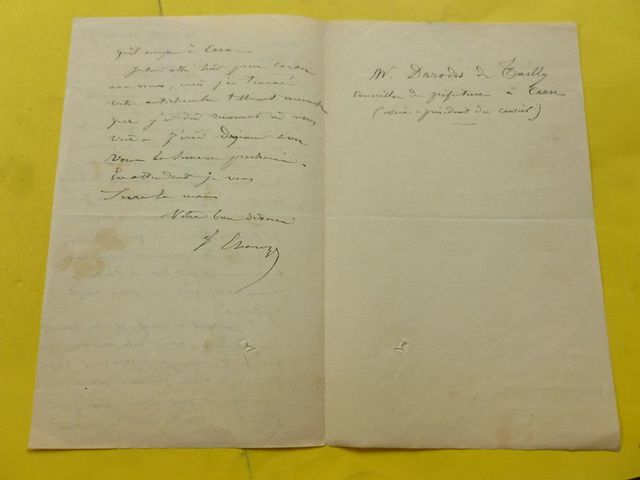 qu'il envoye à Caen
J'étais allé hier pour causer
avec vous, mais j'ai trouvé
votre antichambre
que j'ai dû renoncer à vous
voir. J'irai déjeuner avec
vous la Semaine prochaine.
En attendant je vous
Serre la main
Votre bien dévoué
M. Darodes de Tailly
Conseiller de préfecture à Caen
(vice-président du conseil)